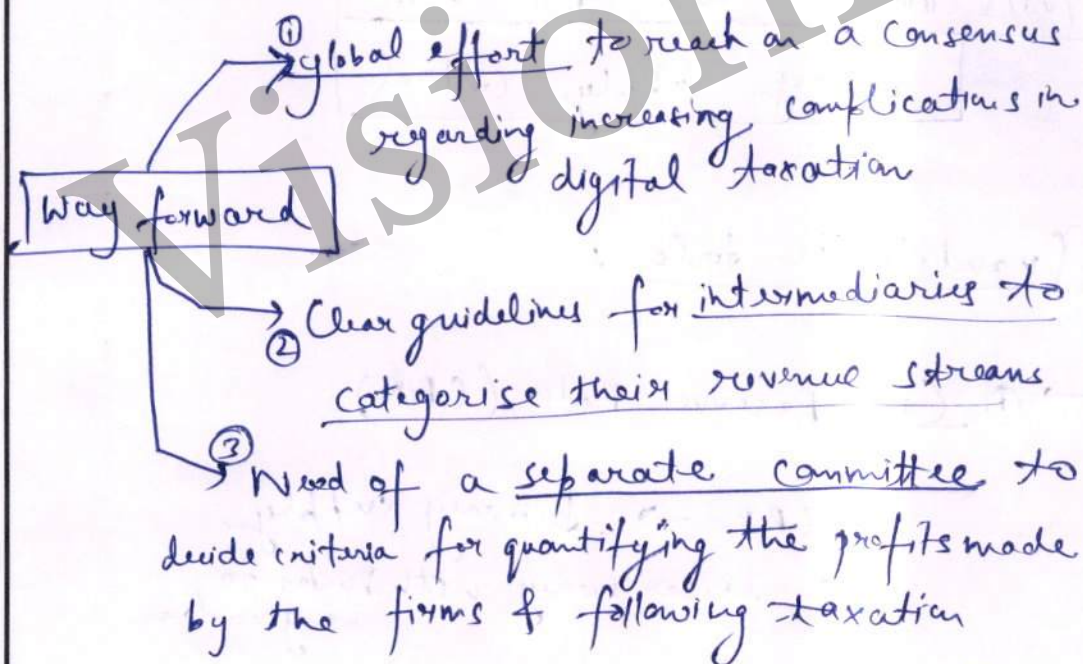 ① global effort to reach on a consensus
regarding increasing complications in
digital taxation
Way forward
② Clear guidelines for intermediaries to
categorise their revenue streams.
③ Need of a separate committee to
decide criteria for quantifying the profits made
by the firms & following taxation
Vision